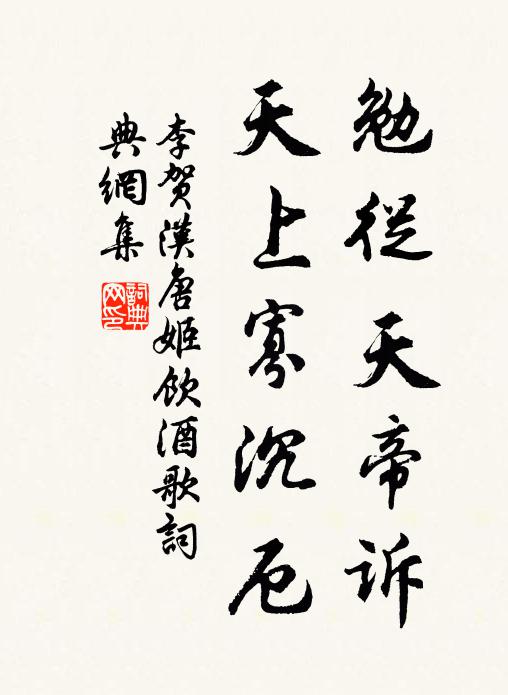 勉從天帝訴
天上寡沉厄
李賀漢唐姬飲酒歌詞
典網集
詞典網印